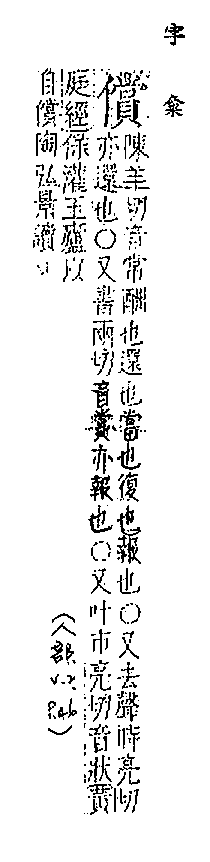 字彙
償陳羊切音常酬也還也當也復也報也〇又去聲時亮切
亦還也〇又書兩切音賞亦報也〇又叶市亮切音狀黃
庭經保灌玉廬以
自償陶弘景讀
(人部